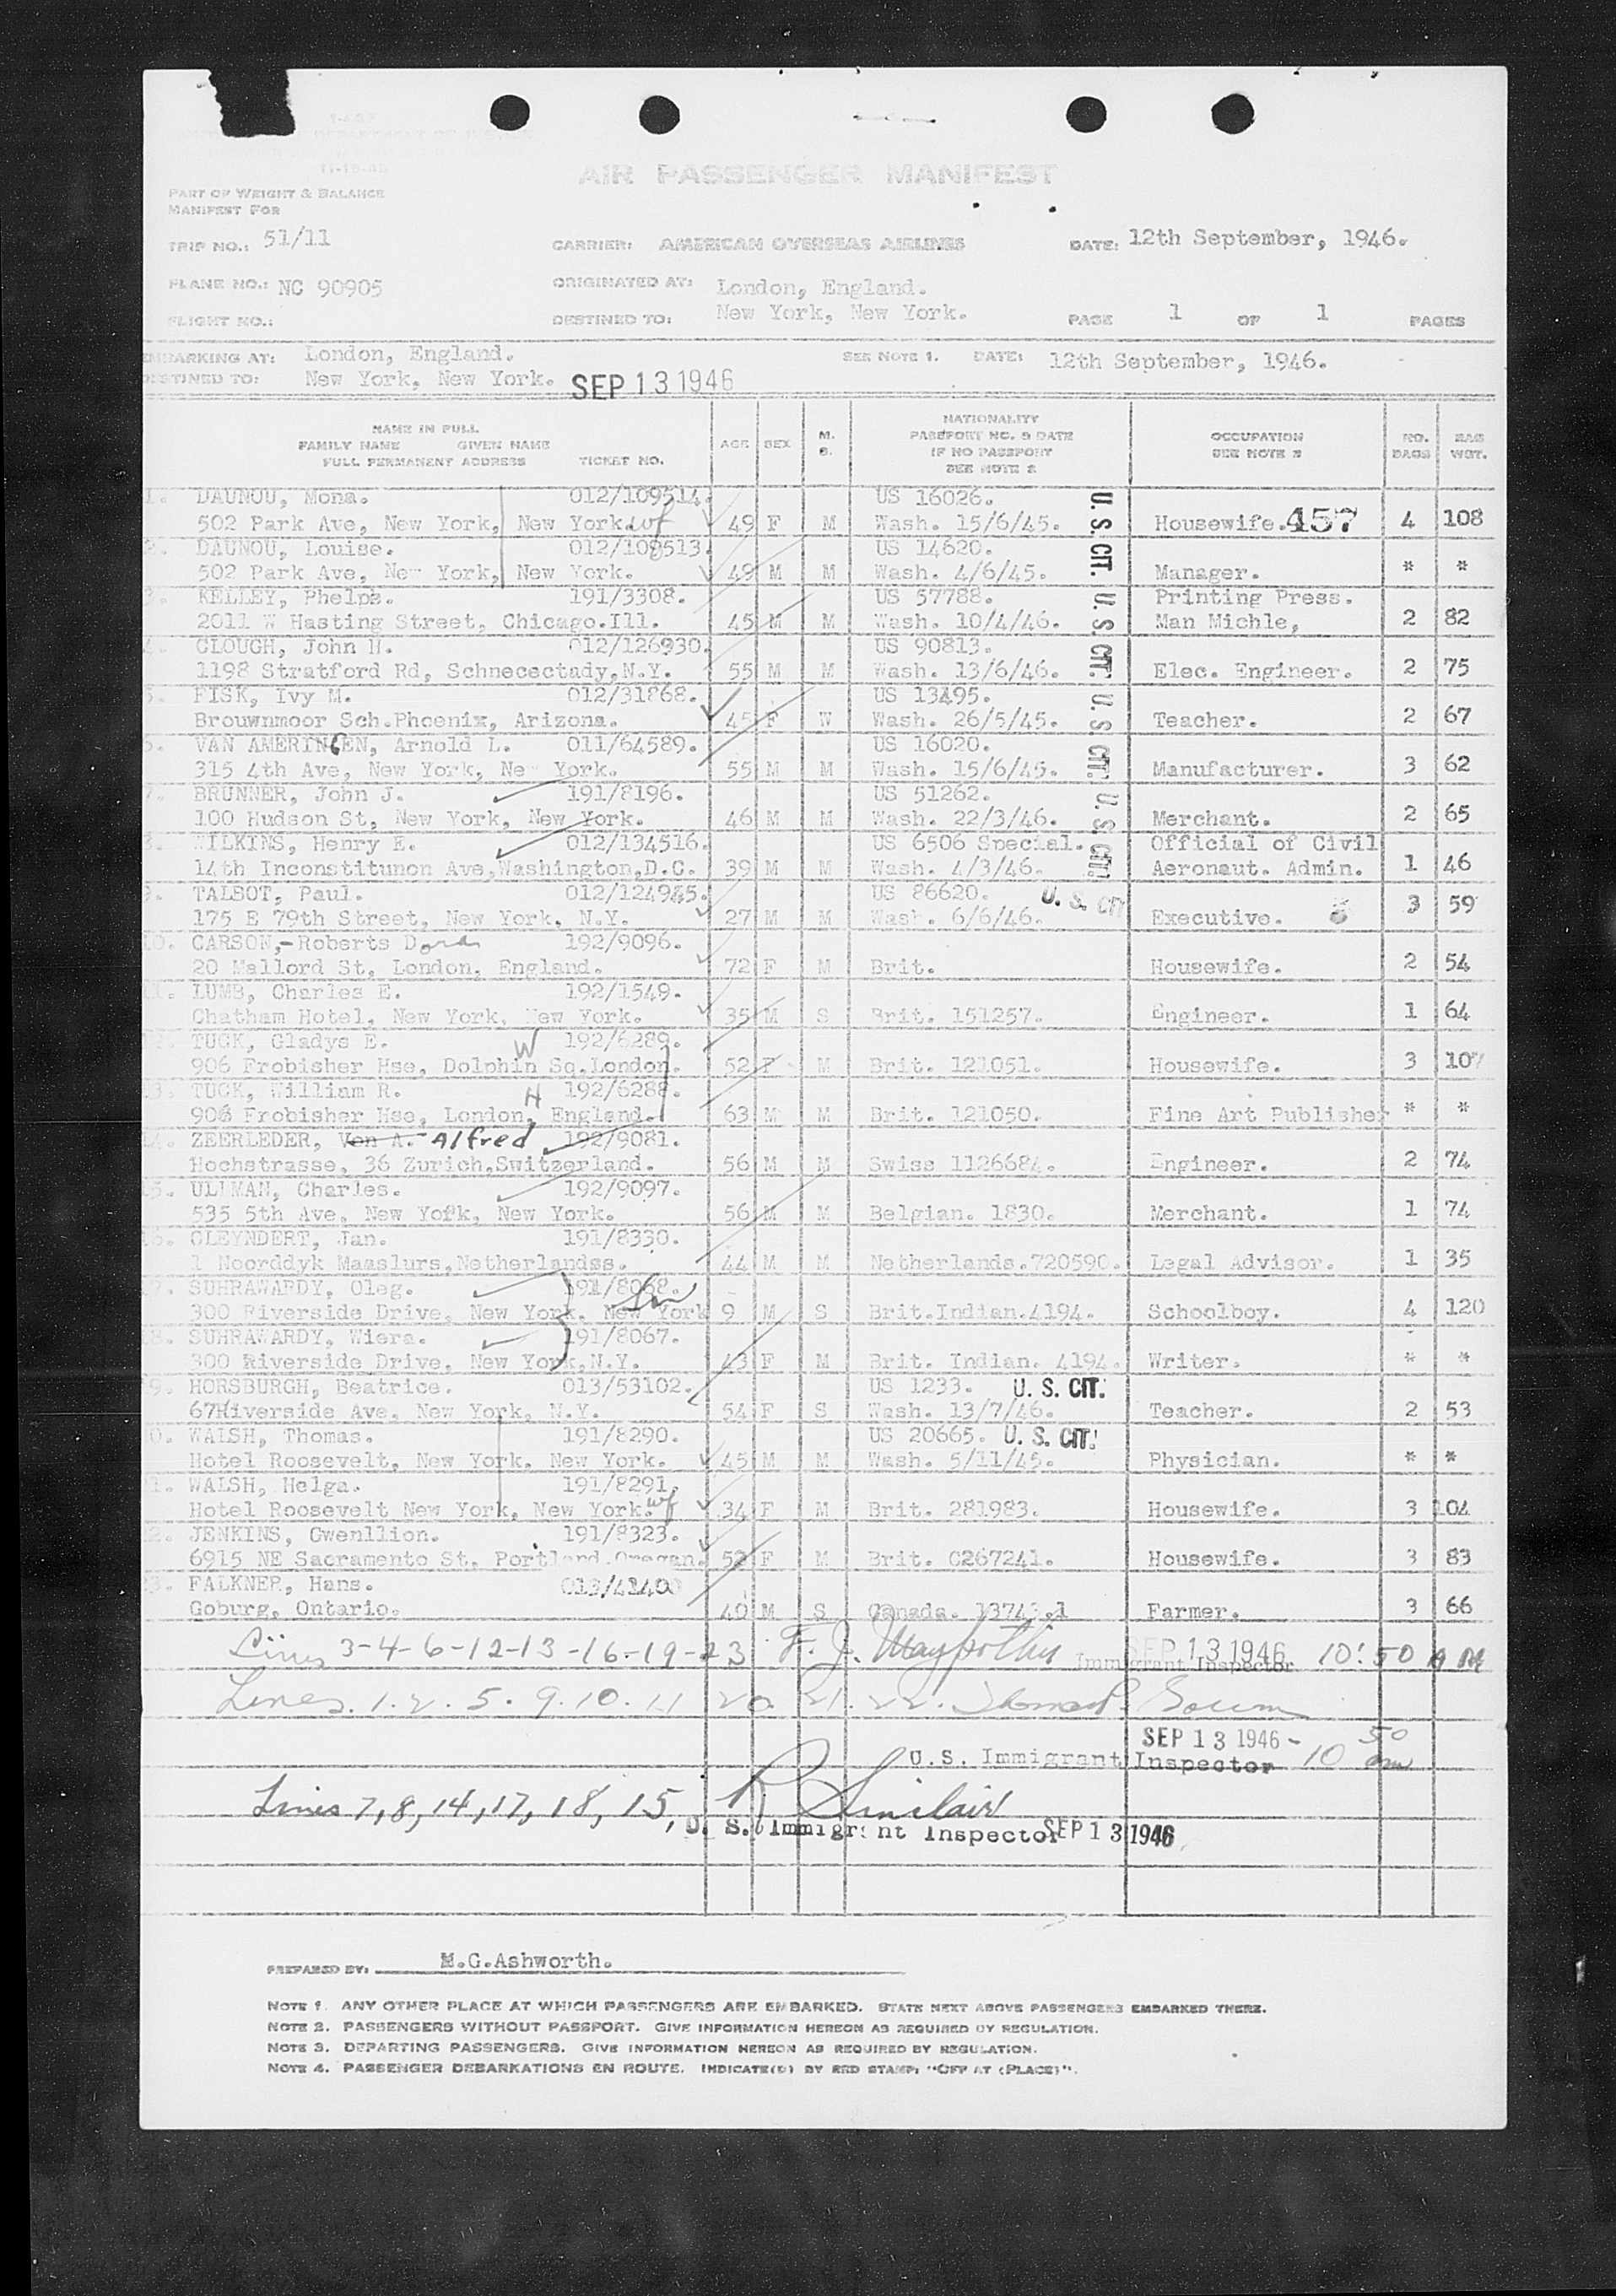 AIR PASSENGER MANIFEST
PART OF WEIGHT & BALANCE
MANIFEST FOR
TRIP NO.: 51/11 CARRIER: AMERICAN OVERSEAS AIRLINES DATE: 12th September, 1946.
PLANE NO.: NC 90905 ORIGINATED AT: London, England.
FLIGHT NO.: DESTINED TO: New York, New York. PAGE 1 OF 1 PAGES
EMBARKING AT: London, England. SEE NOTE 1. DATE: 12th September, 1946.
DESTINED TO: New York, New York. SEP 13 1946
NAME IN FULL
FAMILY NAME GIVEN NAME
FULL PERMANENT ADDRESS TICKET NO.
AGE SEX M. S.
NATIONALITY
PASSPORT NO. & DATE
IF NO PASSPORT
SEE NOTE 2
OCCUPATION
SEE NOTE 3
NO. BAGS
BAG WGT.
1. DAUNOU, Mona. 012/109514. US 16026. U. S. CIT.
502 Park Ave, New York, New York. wf 49 F M Wash. 15/6/45. Housewife. 457 4 108
2. DAUNOU, Louise. 012/109513. US 14620.
502 Park Ave, New York, New York. 49 M M Wash. 4/6/45. Manager. * *
3. KELLEY, Phelps. 191/3308. US 57788. U. S. CIT. Printing Press.
2011 W Hasting Street, Chicago.Ill. 45 M M Wash. 10/4/46. Man Michle, 2 82
4. CLOUGH, John H. 012/126930. US 90813.
1198 Stratford Rd, Schnecectady,N.Y. 55 M M Wash. 13/6/46. Elec. Engineer. 2 75
5. FISK, Ivy M. 012/31868. US 13495. U. S. CIT.
Brouwnmoor Sch.Phoenix, Arizona. 45 F W Wash. 26/5/45. Teacher. 2 67
6. VAN AMERINGEN, Arnold L. 011/64589. US 16020.
315 4th Ave, New York, New York. 55 M M Wash. 15/6/45. Manufacturer. 3 62
7. BRUNNER, John J. 191/8196. US 51262. U. S. CIT.
100 Hudson St, New York, New York. 46 M M Wash. 22/3/46. Merchant. 2 65
8. WILKINS, Henry E. 012/134516. US 6506 Special. Official of Civil
14th Inconstitunon Ave,Washington,D.C. 39 M M Wash. 4/3/46. Aeronaut. Admin. 1 46
9. TALBOT, Paul. 012/124945. US 86620. U. S. CIT
175 E 79th Street, New York, N.Y. 27 M M Wash. 6/6/46. Executive. 3 59
10. CARSON,-Roberts Dora 192/9096.
20 Mallord St, London, England. 72 F M Brit. Housewife. 2 54
11. LUMB, Charles E. 192/1549.
Chatham Hotel, New York, New York. 35 M S Brit. 151257. Engineer. 1 64
12. TUCK, Gladys E. W 192/6289.
906 Frobisher Hse, Dolphin Sq.London. 52 F M Brit. 121051. Housewife. 3 107
13. TUCK, William R. H 192/6288.
906 Frobisher Hse, London, England. 63 M M Brit. 121050. Fine Art Publisher * *
14. ZEERLEDER, Von A. Alfred 192/9081.
Hochstrasse, 36 Zurich,Switzerland. 56 M M Swiss 1126684. Engineer. 2 74
15. ULLMAN, Charles. 192/9097.
535 5th Ave, New York, New York. 56 M M Belgian. 1830. Merchant. 1 74
16. CLEYNDERT, Jan. 191/8330.
1 Noorddyk Maaslurs,Netherlandss. 44 M M Netherlands.720590. Legal Advisor. 1 35
17. SUHRAWARDY, Oleg. 191/8068.
300 Riverside Drive, New York, New York 9 M S Brit.Indian.4194. Schoolboy. 4 120
18. SUHRAWARDY, Wiera. 191/8067.
300 Riverside Drive, New York,N.Y. 43 F M Brit. Indian. 4194. Writer. * *
19. HORSBURGH, Beatrice. 013/53102. US 1233. U. S. CIT.
67Riverside Ave, New York, N.Y. 54 F S Wash. 13/7/46. Teacher. 2 53
20. WALSH, Thomas. 191/8290. US 20665. U. S. CIT.
Hotel Roosevelt, New York, New York. 45 M M Wash. 5/11/45. Physician. * *
21. WALSH, Helga. 191/8291.
Hotel Roosevelt New York, New York. wf 34 F M Brit. 281983. Housewife. 3 104
22. JENKINS, Gwenllion. 191/8323.
6915 NE Sacramento St, Portland.Oregan. 52 F M Brit. C267241. Housewife. 3 83
23. FALKNER, Hans. 013/41400
Goburg, Ontario. 40 M S Canada. 13743.1 Farmer. 3 66
Lines 3-4-6-12-13-16-19-23 F. J. SEP 13 1946 Immigrant Inspector 10:50 AM
Lines. 1. 2. 5. 9. 10. 11 20 21. 22.
SEP 13 1946 - 10 50 am
U.S. Immigrant Inspector
Lines 7, 8, 14, 17, 18, 15, R Sinclair
U. S. Immigrant Inspector SEP 13 1946
PREPARED BY: M.G.Ashworth.
NOTE 1. ANY OTHER PLACE AT WHICH PASSENGERS ARE EMBARKED. STATE NEXT ABOVE PASSENGERS EMBARKED THERE.
NOTE 2. PASSENGERS WITHOUT PASSPORT. GIVE INFORMATION HEREON AS REQUIRED BY REGULATION.
NOTE 3. DEPARTING PASSENGERS. GIVE INFORMATION HEREON AS REQUIRED BY REGULATION.
NOTE 4. PASSENGER DEBARKATIONS EN ROUTE. INDICATE(D) BY RED STAMP: "OFF AT (PLACE)".